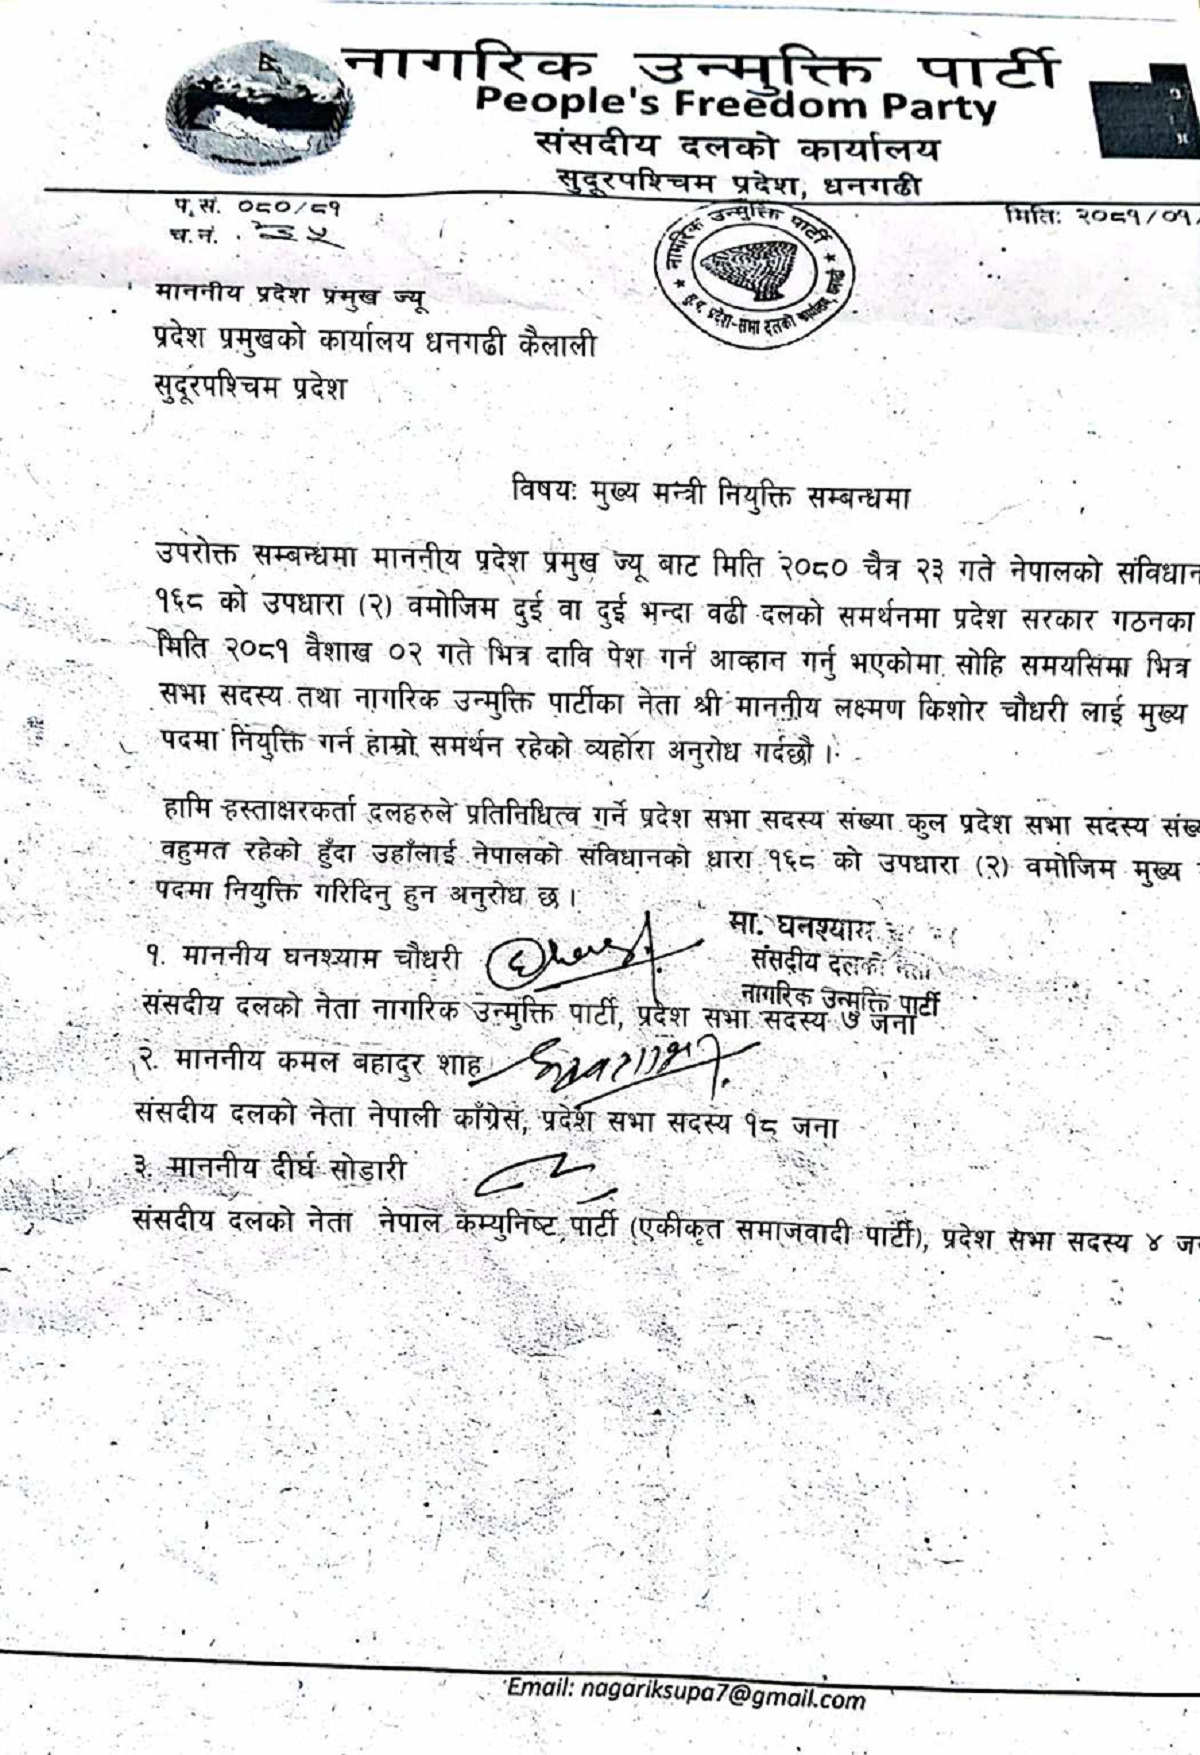 नागरिक उन्मुक्ति पार्टी
People's Freedom Party
संसदीय दलको कार्यालय
सुदूरपश्चिम प्रदेश, धनगढी
प.सं. ०८०/८१
मितिः २०८१/०१
च.नं. ३५
नागरिक उन्मुक्ति पार्टी
सु.प. प्रदेश-सभा दलको कार्यालय,
माननीय प्रदेश प्रमुख ज्यू
प्रदेश प्रमुखको कार्यालय धनगढी कैलाली
सुदूरपश्चिम प्रदेश
विषयः मुख्य मन्त्री नियुक्ति सम्बन्धमा
उपरोक्त सम्बन्धमा माननीय प्रदेश प्रमुख ज्यू बाट मिति २०८० चैत्र २३ गते नेपालको संविधान
१६८ को उपधारा (२) वमोजिम दुई वा दुई भन्दा वढी दलको समर्थनमा प्रदेश सरकार गठनका
मिति २०८१ वैशाख ०२ गते भित्र दावि पेश गर्न आव्हान गर्नु भएकोमा सोहि समयसिमा भित्र
सभा सदस्य तथा नागरिक उन्मुक्ति पार्टीका नेता श्री माननीय लक्ष्मण किशोर चौधरी लाई मुख्य
पदमा नियुक्ति गर्न हाम्रो समर्थन रहेको व्यहोरा अनुरोध गर्दछौ ।
हामि हस्ताक्षरकर्ता दलहरुले प्रतिनिधित्व गर्ने प्रदेश सभा सदस्य संख्या कुल प्रदेश सभा सदस्य संख्
वहुमत रहेको हुँदा उहाँलाई नेपालको संविधानको धारा १६८ को उपधारा (२) वमोजिम मुख्य
पदमा नियुक्ति गरिदिनु हुन अनुरोध छ ।
मा. घनश्याम
१. माननीय घनश्याम चौधरी
संसदीय दलको नेता
नागरिक उन्मुक्ति पार्टी
संसदीय दलको नेता नागरिक उन्मुक्ति पार्टी, प्रदेश सभा सदस्य ७ जना
२. माननीय कमल बहादुर शाह
संसदीय दलको नेता नेपाली काँग्रेस, प्रदेश सभा सदस्य १८ जना
३. माननीय दीर्घ सोडारी
संसदीय दलको नेता नेपाल कम्युनिष्ट पार्टी (एकीकृत समाजवादी पार्टी), प्रदेश सभा सदस्य ४ ज
Email: nagariksupa7@gmail.com